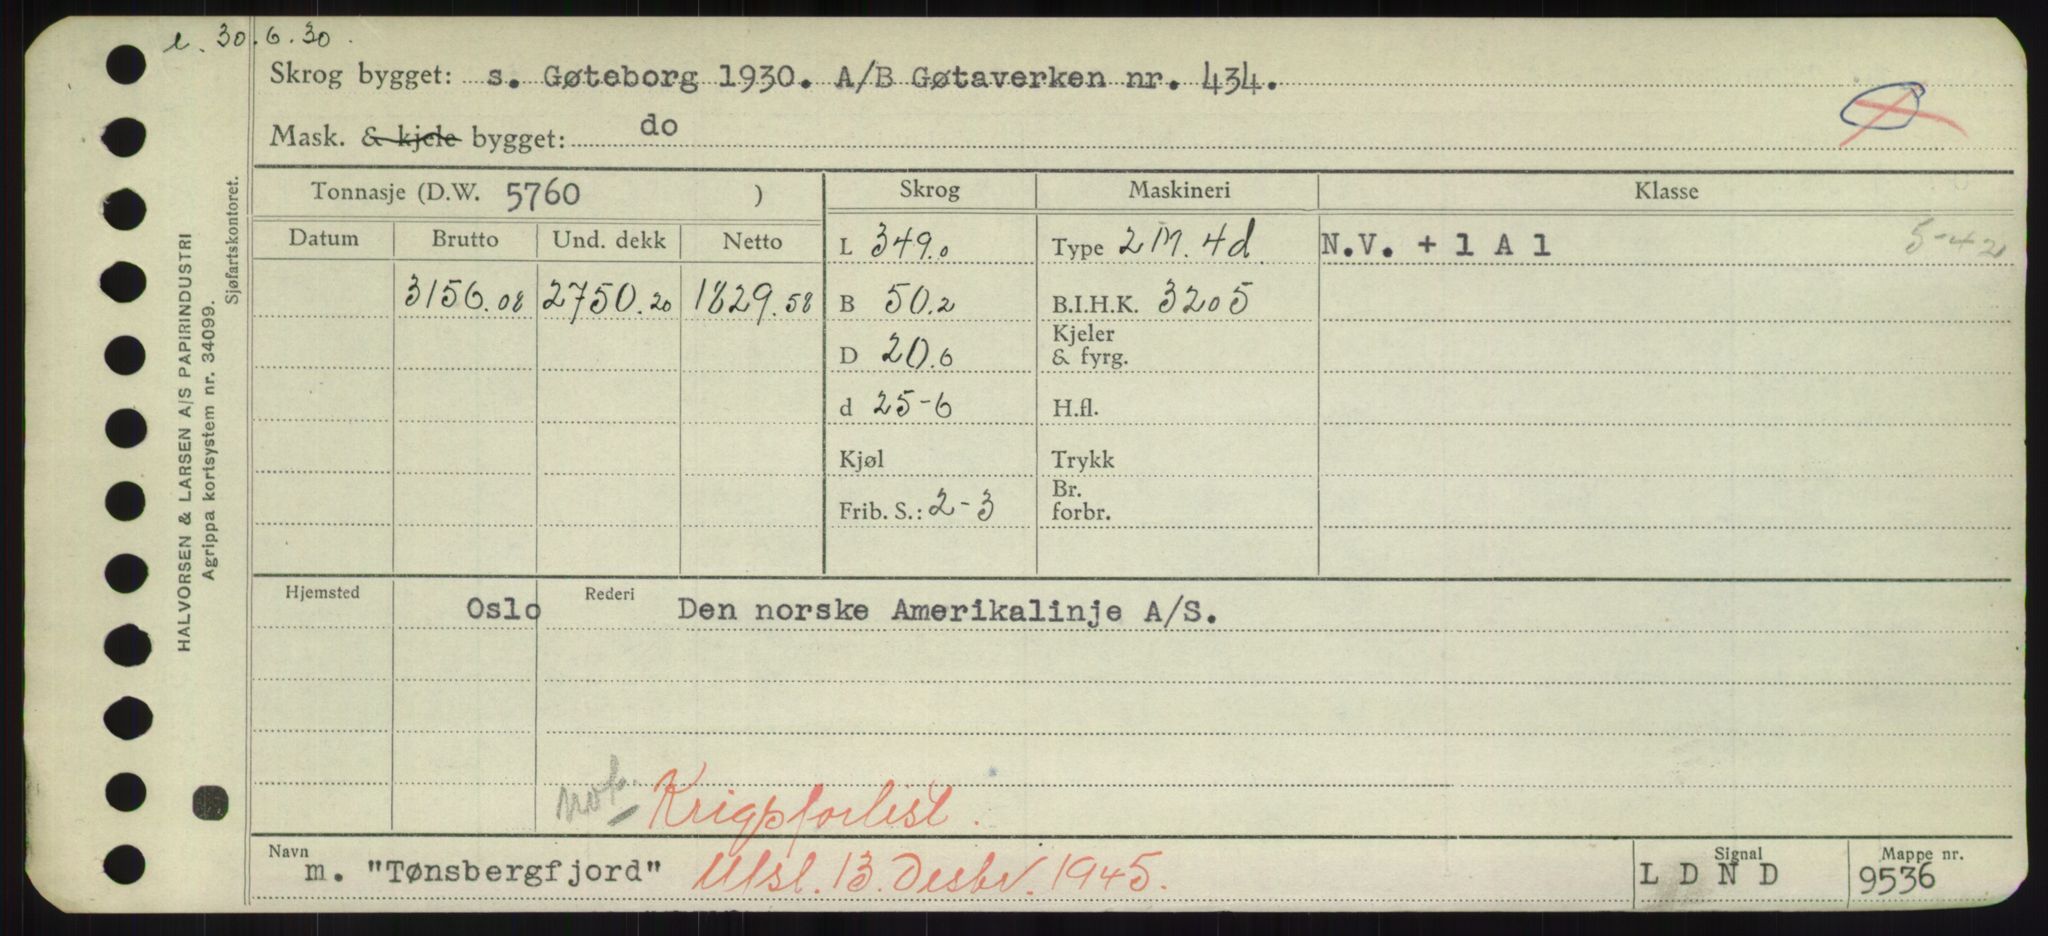 l. 30.6.30.
Skrog bygget: s. Gøteborg 1930. A/B Gøtaverken nr. 434.
Mask. & kjele bygget: do
Tonnasje (D.W. 5760 )
Skrog
Maskineri
Klasse
Datum Brutto Und. dekk Netto
3156.08 2750.20 1829.58
L 349.0
B 50.2
D 20.6
d 25-6
Kjøl
Frib. S.: 2-3
Type 2 M. 4d.
B.I.H.K. 3205
Kjeler
& fyrg.
H.fl.
Trykk
Br.
forbr.
N.V. + 1 A 1 5-42
Hjemsted Oslo Rederi Den norske Amerikalinje A/S.
not. Krigsforlist.
Navn m. "Tønsbergfjord" Utsl. 13. Desbr. 1945.
Signal L D N D
Mappe nr. 9536
HALVORSEN & LARSEN A/S PAPIRINDUSTRI
Agrippa kortsystem nr. 34099.
Sjøfartskontoret.